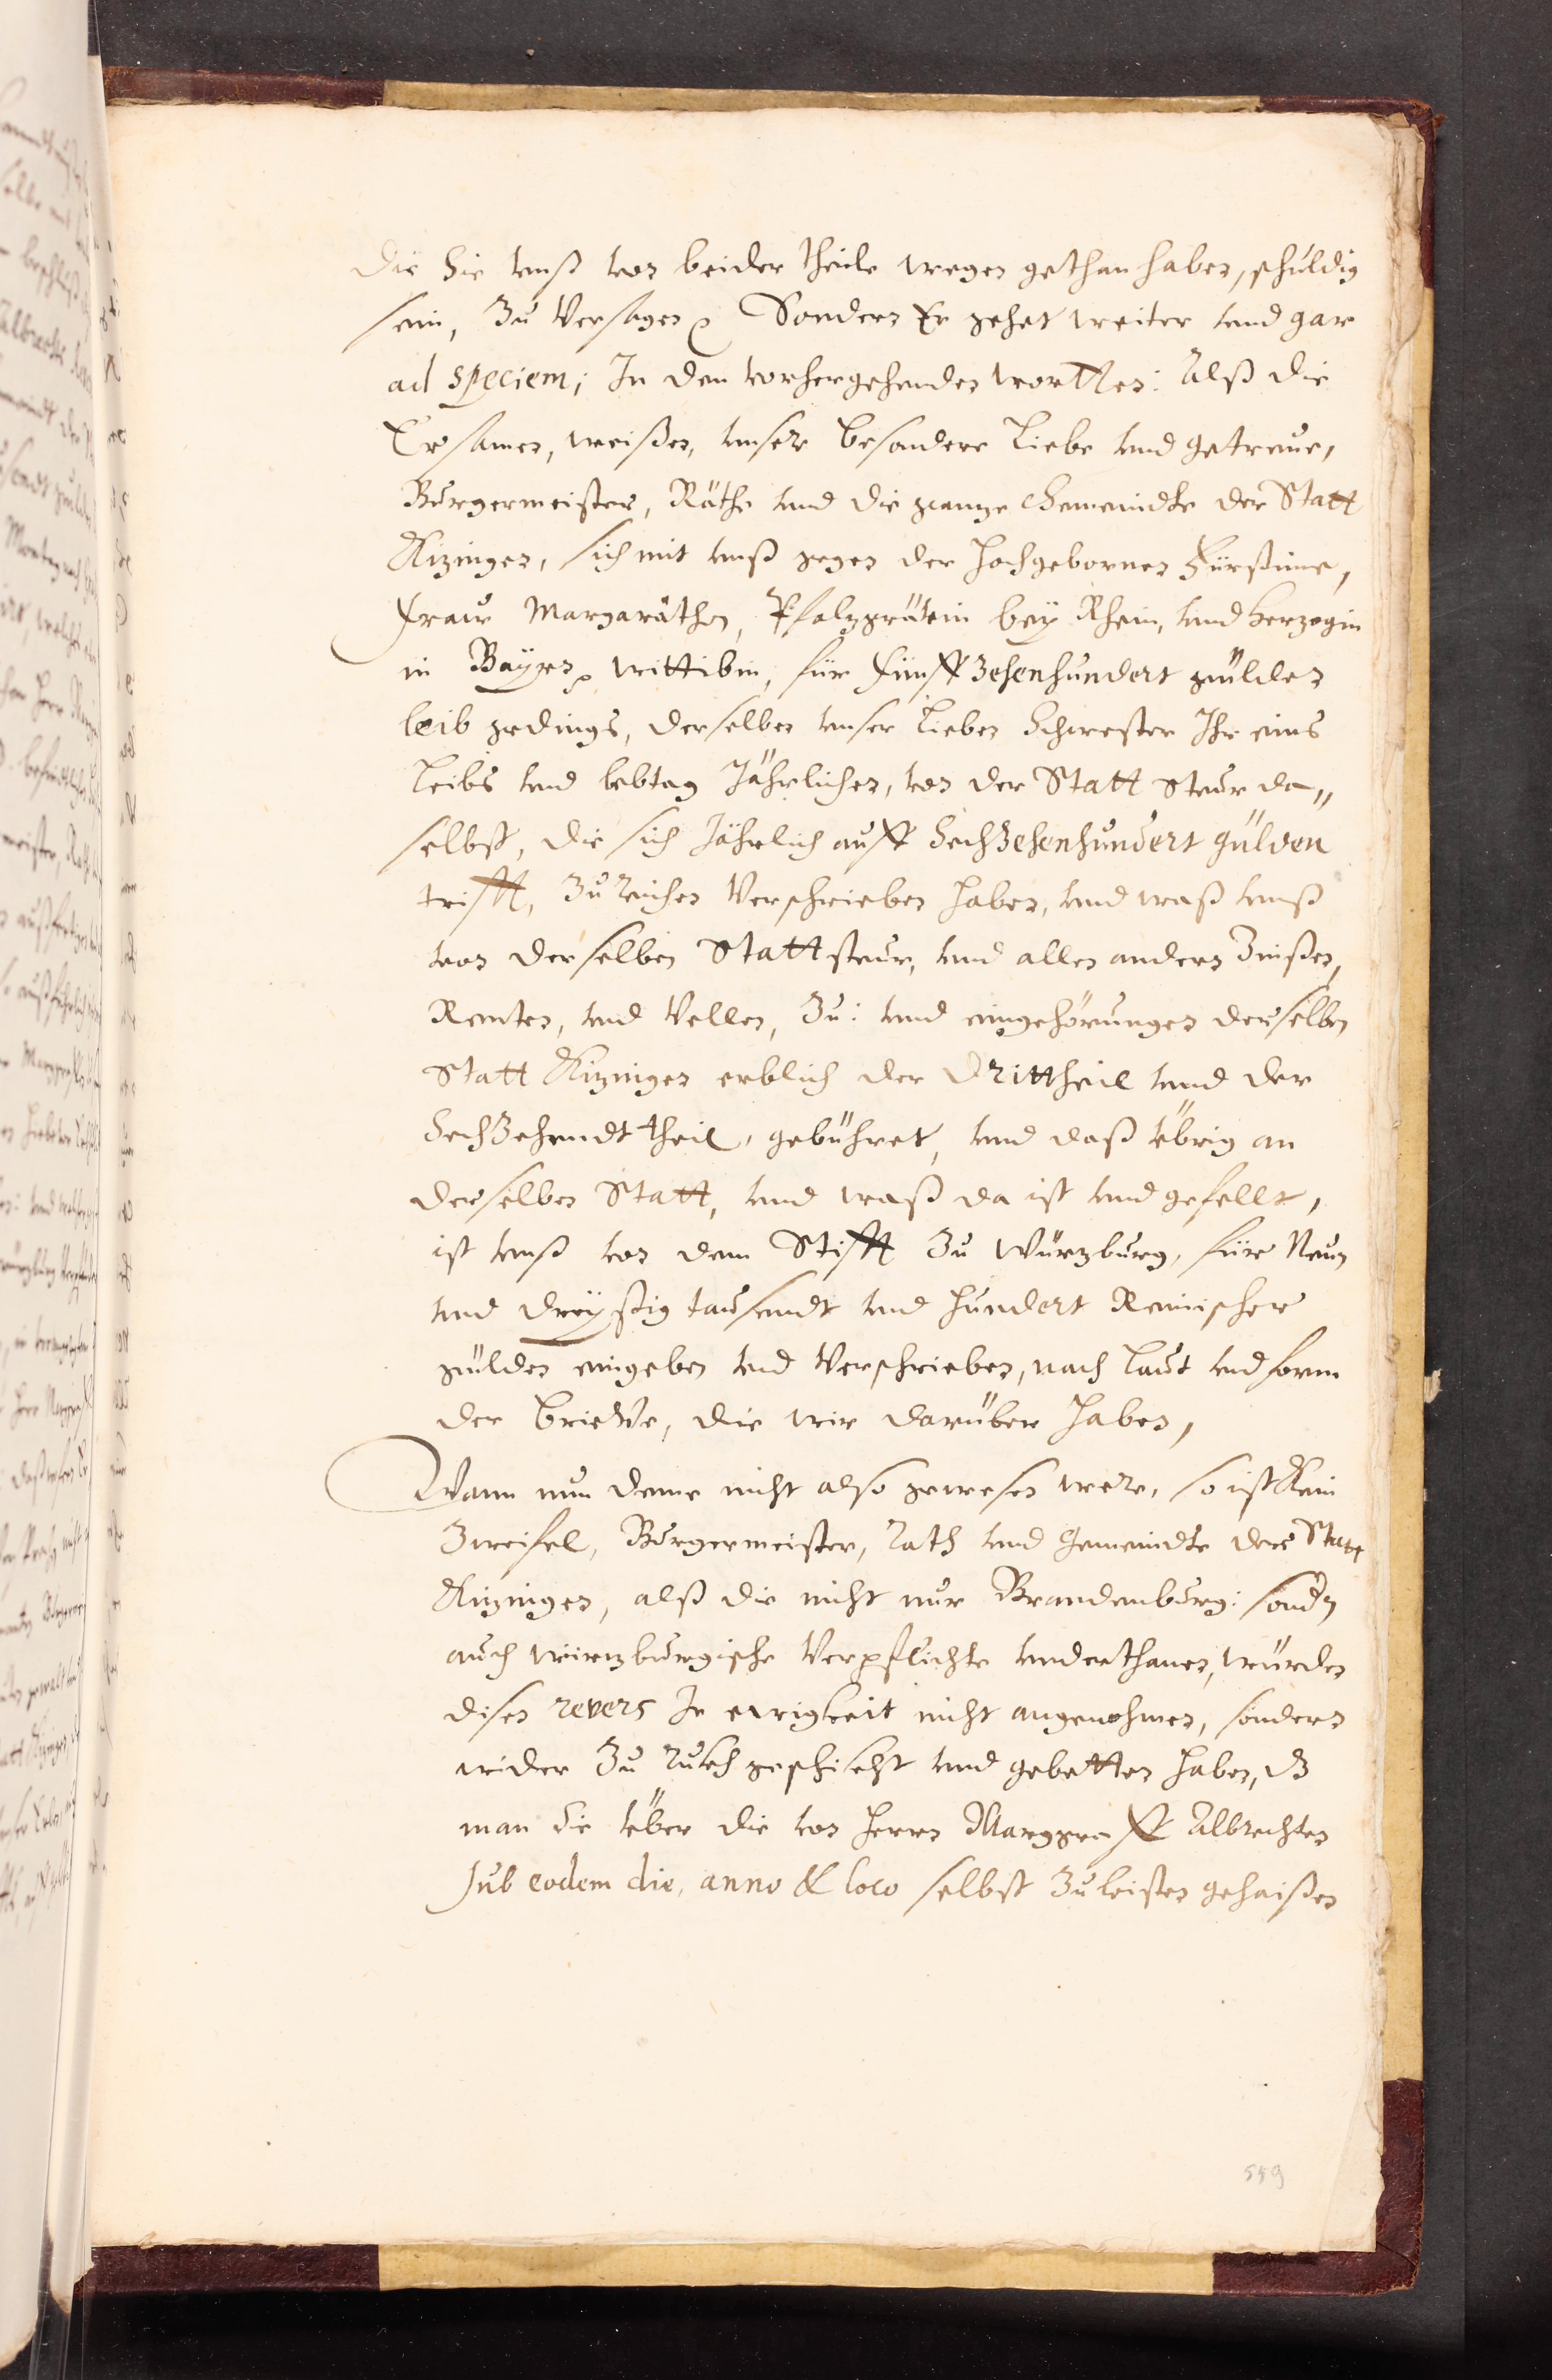 die Sie vnß von beider theile wegen gethan haben, schuldig
sein, Zu Versagen. Sondern Er gehet weiter vnd gar
ad speciem; In den vorhergehenden wortten: Alß die
Ersamen, weißen, vnsere besondere Liebe vnd getreue,
Burgermeister, Räthe vnd die gantze Gemeindte der Statt
Kizingen, sich mit vnß gegen der Hochgebornen Fürstinne,
Fraw Margaräthen, Pfalzgräuin bey Rhein, vnd Herzogin
in Bayrn, wittibin, für Fünffzehenhundert gulden
leib gedings, derselben vnser Lieben Schwester Ihr eins
Leibs vnd lebtag Jährlichen, von der Statt Steur da„
selbst, die sich Jährlich auff Sechzehenhundert gulden
trifft, Zu reichen Verschrieben haben, vnd waß vnß
von derselben Stattsteur, vnd allen andern Zinßen,
Renten, vnd Vellen, Zu: vnd eingehörungen derselben
Statt Kizingen erblich der Drittheil vnd der
Sechzehendt theil, gebühret, vnd daß übrig an
derselben Statt, vnd waß da ist vnd gefellt,
ist vnß von dem Stifft Zu Würzburg, für Neun
vnd dreyßig tausendt vnd hundert Reinischer
gulden eingeben vnd Verschrieben, nach laut vnd form
der brieffe, die wir darüber haben,
Wann nun deme nicht also gewesen were, so ist Kein
Zweifel, Burgermeister, Rath vnd Gemeindte der Statt
Kizingen, alß die nicht nur Brandenburg: sondn
auch würzburgische Verpflichte vnderthanen, würden
disen revers In ewigkeit nicht angenohmen, sondern
wider Zu ruckh geschickht vnd gebetten haben, dz
man Sie über die von Herrn Marggraff Albrechten
sub eodem die, anno & loco selbst Zu leisten gehaißen
559